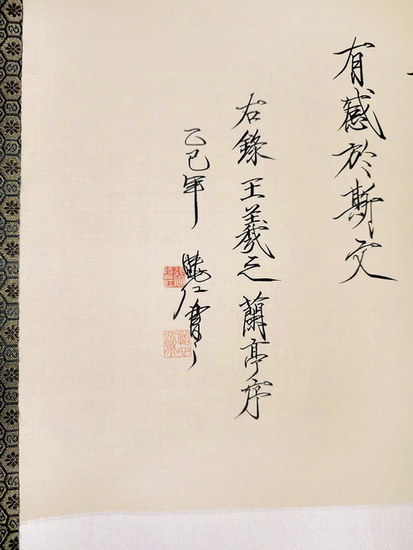 有感於斯文
右錄王羲之蘭亭序
乙巳年